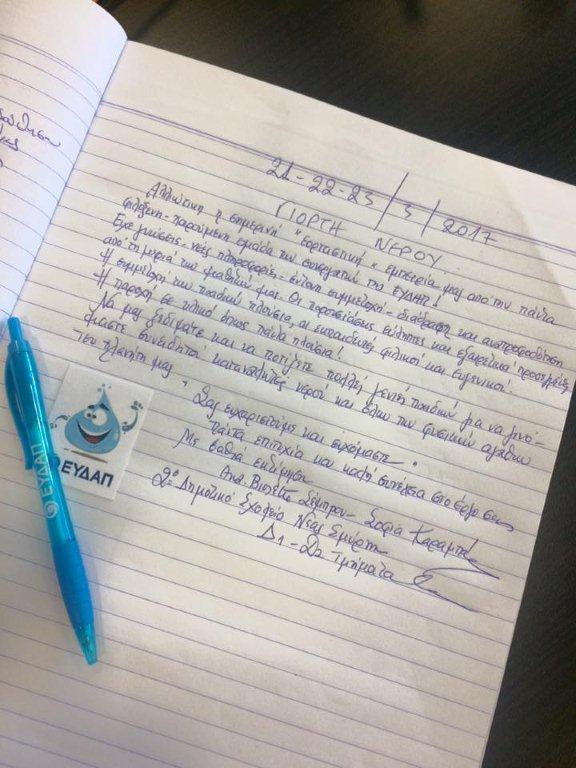 21-22-23/3/2017
ΓΙΟΡΤΗ ΝΕΡΟΥ
Αλλιώτικη η σημερινή "εορταστική" εμπειρία μας από την πάντα
φιλόξενη - χαρούμενη ομάδα των συνεργατών της ΕΥΔΑΠ!
Είχε γνώσεις - νέες πληροφορίες - έντονη συμμετοχή - διάδραση και ανατροφοδότηση
από τη μεριά των μαθητών μας. Οι παρουσιάσεις εύληπτες και εξαιρετικά προσεγμένες
Η συμμετοχή των παιδιών πλούσια, οι εκπαιδευτές φιλικοί και ευγενικοί.
Η παροχή σε υλικό όπως πάντα πλούσια!
Να μας ξεδιψάτε και να ποτίζετε πολλές γενιές παιδιών για να γινό-
μαστε συνειδητοί καταναλωτές νερού και όλων των φυσικών αγαθών
του πλανήτη μας.
Σας ευχαριστούμε και ευχόμαστε
πάντα επιτυχία και καλή συνέχεια στο έργο σας
Με βαθιά εκτίμηση
Σοφία
2ο Δημοτικό Σχολείο Νέας Σμύρνης
Δ1 - Δ2 Τμήματα
ΕΥΔΑΠ
ΕΥΔΑΠ